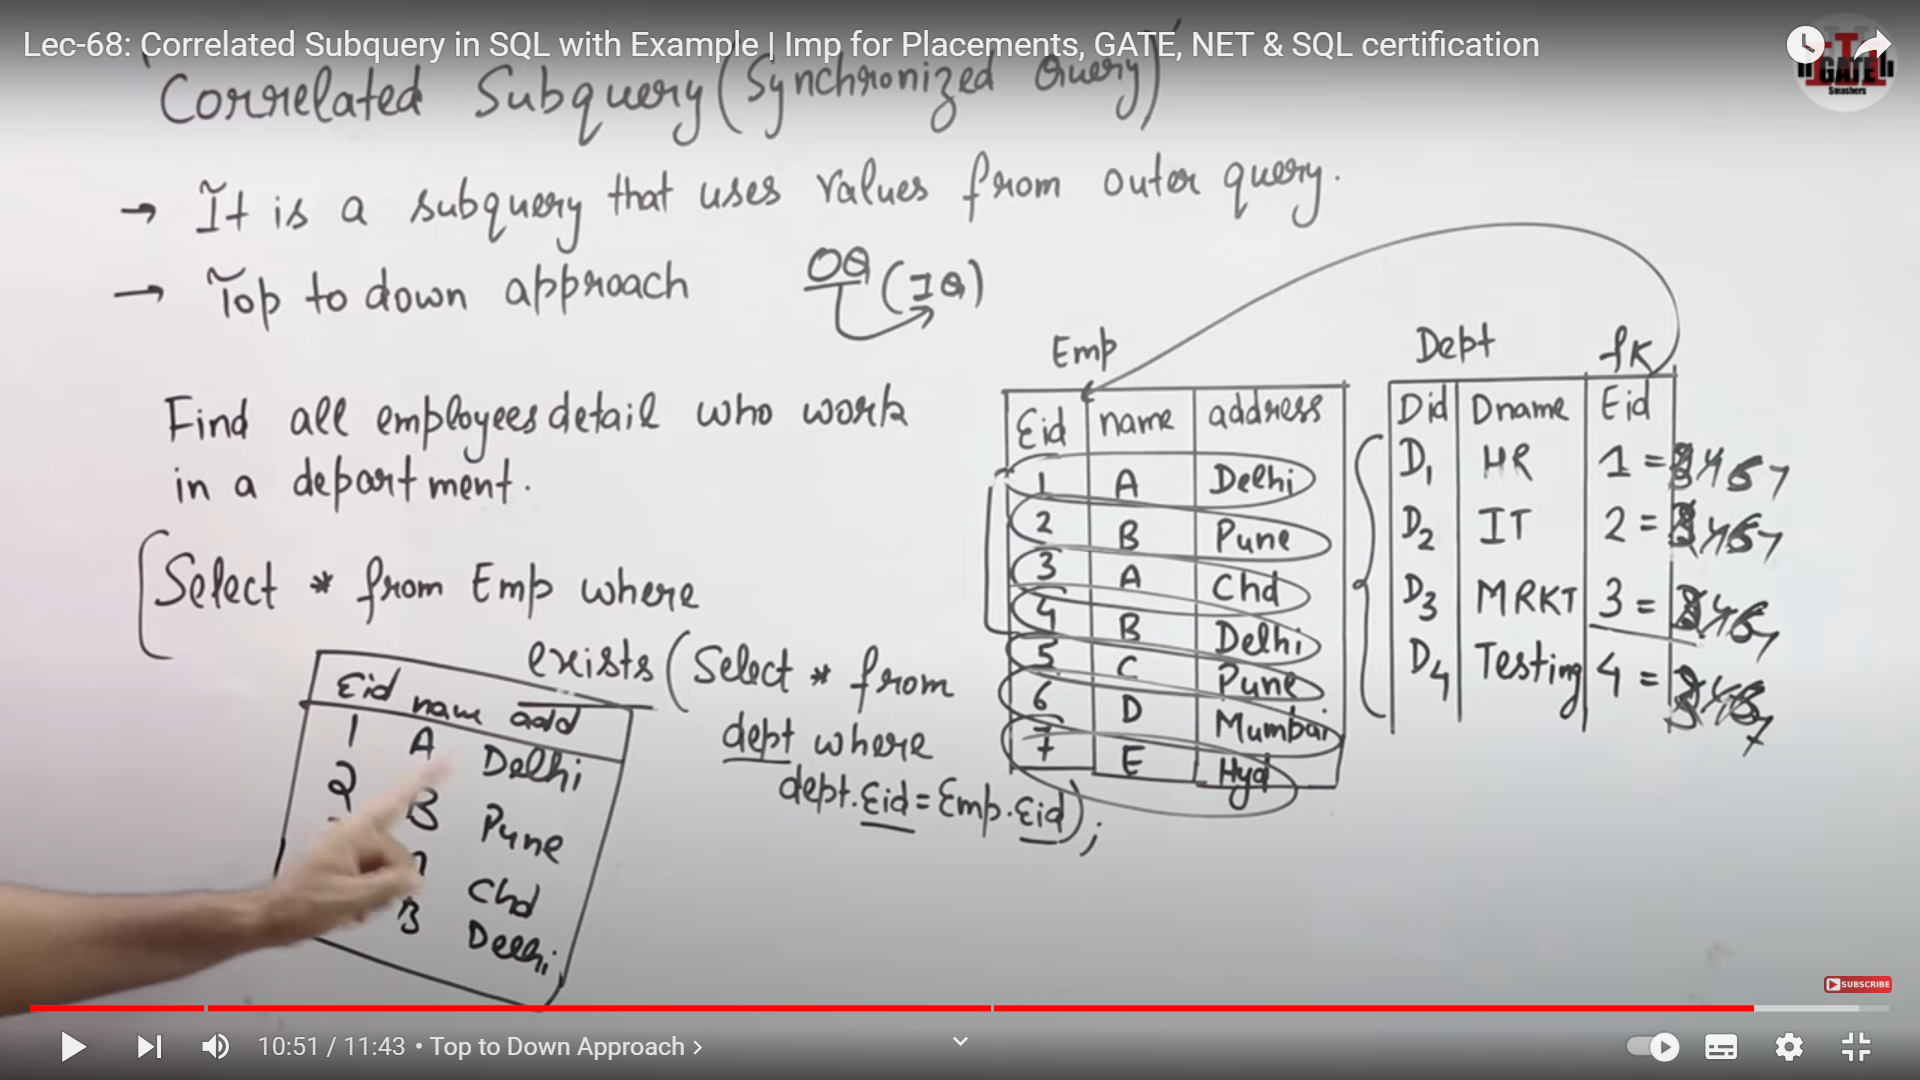 Lec-68: Correlated Subquery in SQL with Example | Imp for Placements, GATE, NET & SQL certification
GATE
Smashers
Correlated Subquery (Synchronized Query)
→ It is a subquery that uses values from outer query.
→ Top to down approach OQ (IQ)
Find all employees detail who work
in a department.
Select * from Emp where
exists (Select * from
dept where
dept.Eid = Emp.Eid);
Eid name add
1 A Delhi
2 B Pune
Chd
B Delhi
Emp
Eid name address
1 A Delhi
2 B Pune
3 A Chd
4 B Delhi
5 C Pune
6 D Mumbai
7 E Hyd
Dept fK
Did Dname Eid
D1 HR 1 =
D2 IT 2 =
D3 MRKT 3 =
D4 Testing 4 =
SUBSCRIBE
10:51 / 11:43 • Top to Down Approach >